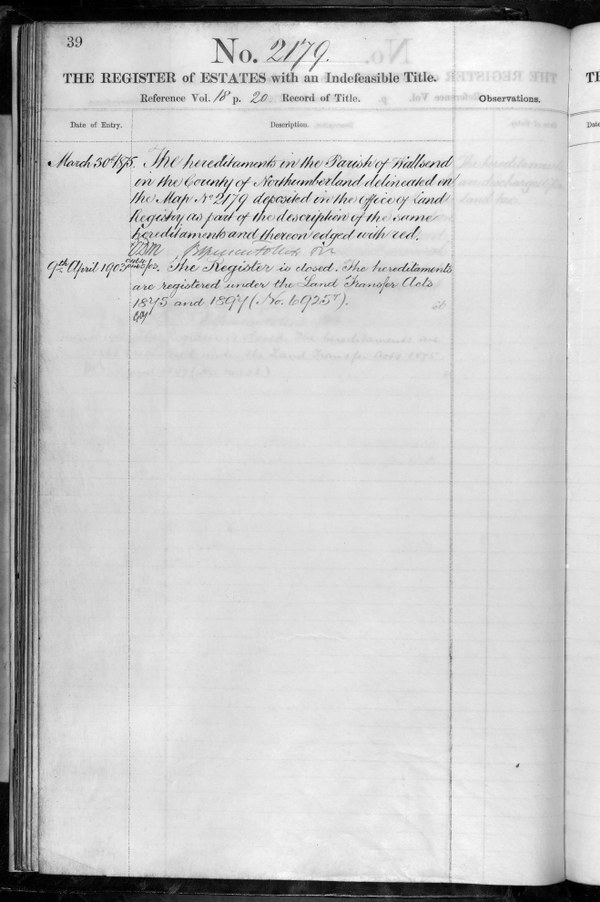 39
No. 2179.
THE REGISTER of ESTATES with an Indefeasible Title.
Reference Vol. 18 p. 20 Record of Title.
Observations.
Date of Entry.
Description.
March 30th 1875. The hereditaments in the Parish of Wallsend
in the County of Northumberland delineated on
the Map No 2179 deposited in the Office of Land
Registry as part of the description of the same
hereditaments and thereon edged with red.
9th April 1902 The Register is closed. The hereditaments
are registered under the Land Transfer Acts
1875 and 1897 (No. 6925).